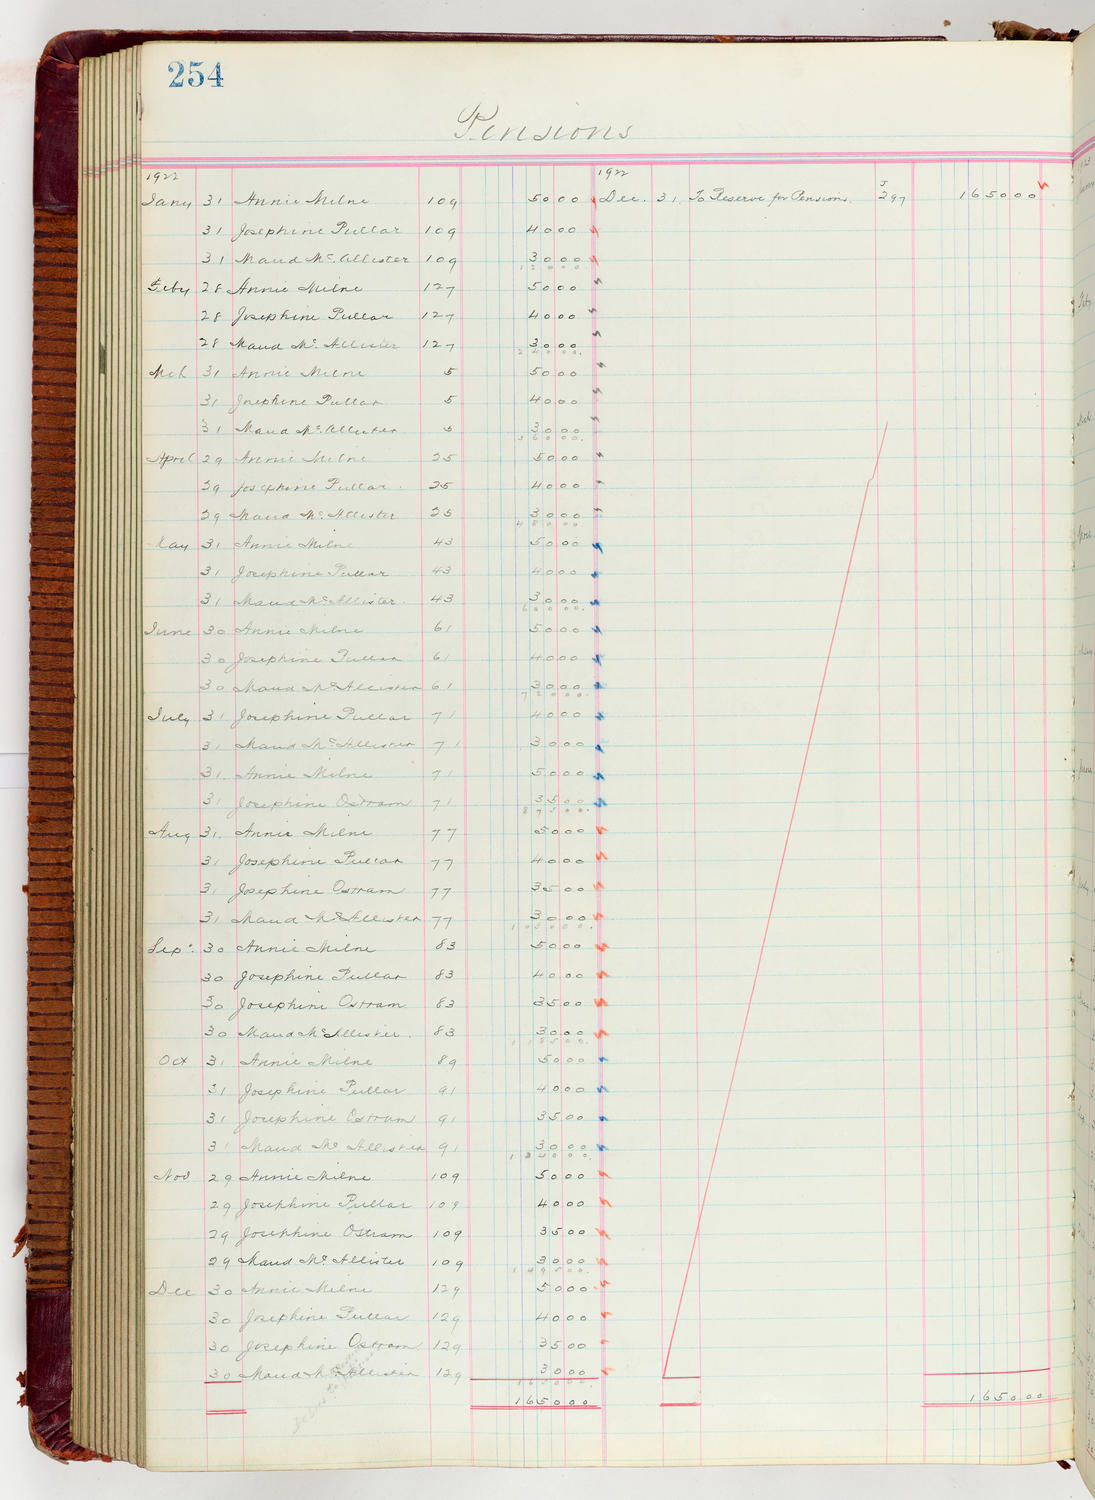 254
Pensions
1922 1922
Jany 31 Annie Milne 109 5000 Dec. 31 To Reserve for Pensions J 297 165000
31 Josephine Pullar 109 4000
31 Maud Mc Allister 109 3000
12000
Feby 28 Annie Milne 127 5000
28 Josephine Pullar 127 4000
28 Maud Mc Allister 127 3000
24000
Mch 31 Annie Milne 5 5000
31 Josephine Pullar 5 4000
31 Maud Mc Allister 5 3000
36000
April 29 Annie Milne 25 5000
29 Josephine Pullar 25 4000
29 Maud Mc Allister 25 3000
48000
May 31 Annie Milne 43 5000
31 Josephine Pullar 43 4000
31 Maud Mc Allister 43 3000
60000
June 30 Annie Milne 61 5000
30 Josephine Pullar 61 4000
30 Maud Mc Allister 61 3000
72000
July 31 Josephine Pullar 71 4000
31 Maud Mc Allister 71 3000
31 Annie Milne 71 5000
31 Josephine Ostram 71 3500
87500
Aug 31 Annie Milne 77 5000
31 Josephine Pullar 77 4000
31 Josephine Ostram 77 3500
31 Maud Mc Allister 77 3000
103000
Sep. 30 Annie Milne 83 5000
30 Josephine Pullar 83 4000
30 Josephine Ostram 83 3500
30 Maud Mc Allister 83 3000
118500
Oct 31 Annie Milne 89 5000
31 Josephine Pullar 91 4000
31 Josephine Ostram 91 3500
31 Maud Mc Allister 91 3000
134000
Nov 29 Annie Milne 109 5000
29 Josephine Pullar 109 4000
29 Josephine Ostram 109 3500
29 Maud Mc Allister 109 3000
149500
Dec 30 Annie Milne 129 5000
30 Josephine Pullar 129 4000
30 Josephine Ostram 129 3500
30 Maud Mc Allister 129 3000
165000
165000 165000